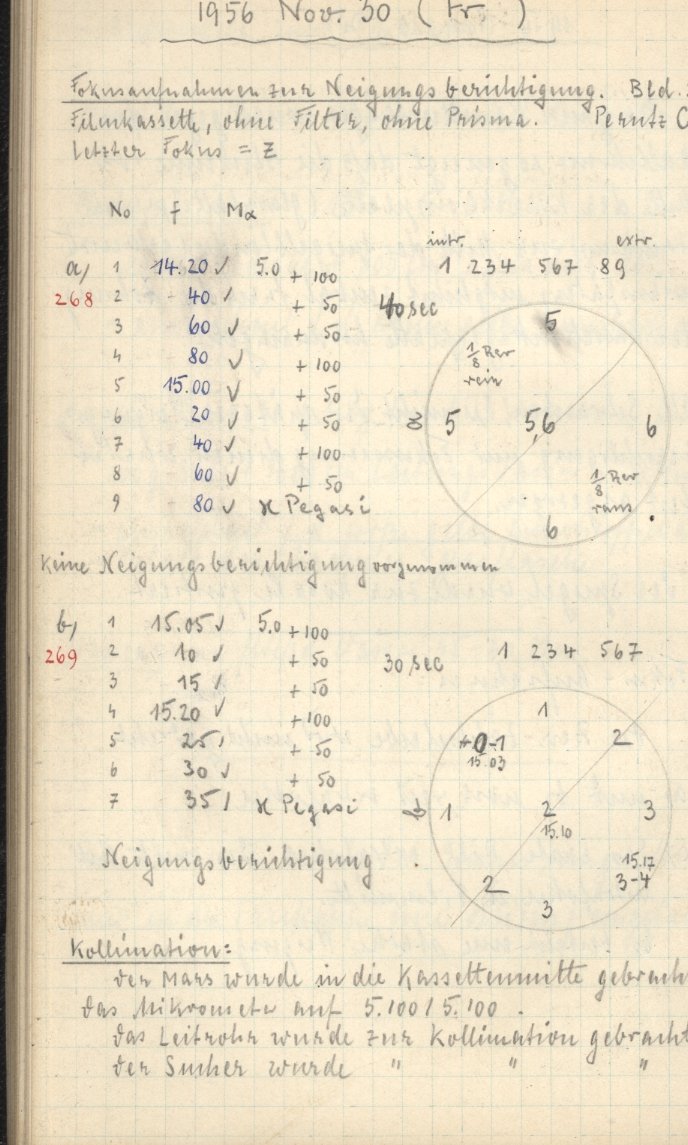 1956 Nov. 30 ( Tr. )
Fokusaufnahmen zur Neigungsberichtigung. Bld.
Filmkassette, ohne Filter, ohne Prisma. Perutz
Letzter Fokus = Z
No f Mα
intr. extr.
a) 1 14.20 ✓ 5.0 + 100 1 234 567 89
268 2 40 ✓ + 50 40 sec
3 60 ✓ + 50 5
4 80 ✓ + 100 1/8 Rev rein
5 15.00 ✓ + 50
6 20 ✓ + 50 5 5,6 6
7 40 ✓ + 100
8 60 ✓ + 50 1/8 Rev raus
9 80 ✓ ϰ Pegasi 6
Keine Neigungsberichtigung vorzunommen
b) 1 15.05 ✓ 5.0 + 100
269 2 10 ✓ + 50 30 sec 1 234 567
3 15 ✓ + 50
4 15.20 ✓ + 100 1
5 25 + 50 0-1 2
15.03
6 30 ✓ + 50
7 35 ϰ Pegasi 1 2 3
15.10
Neigungsberichtigung . 15.17
2 3-4
3
Kollimation:
der Mars wurde in die Kassettenmitte gebrach
das Mikrometer auf 5.100 / 5.100 .
das Leitrohr wurde zur Kollimation gebracht
der Sucher wurde " " "